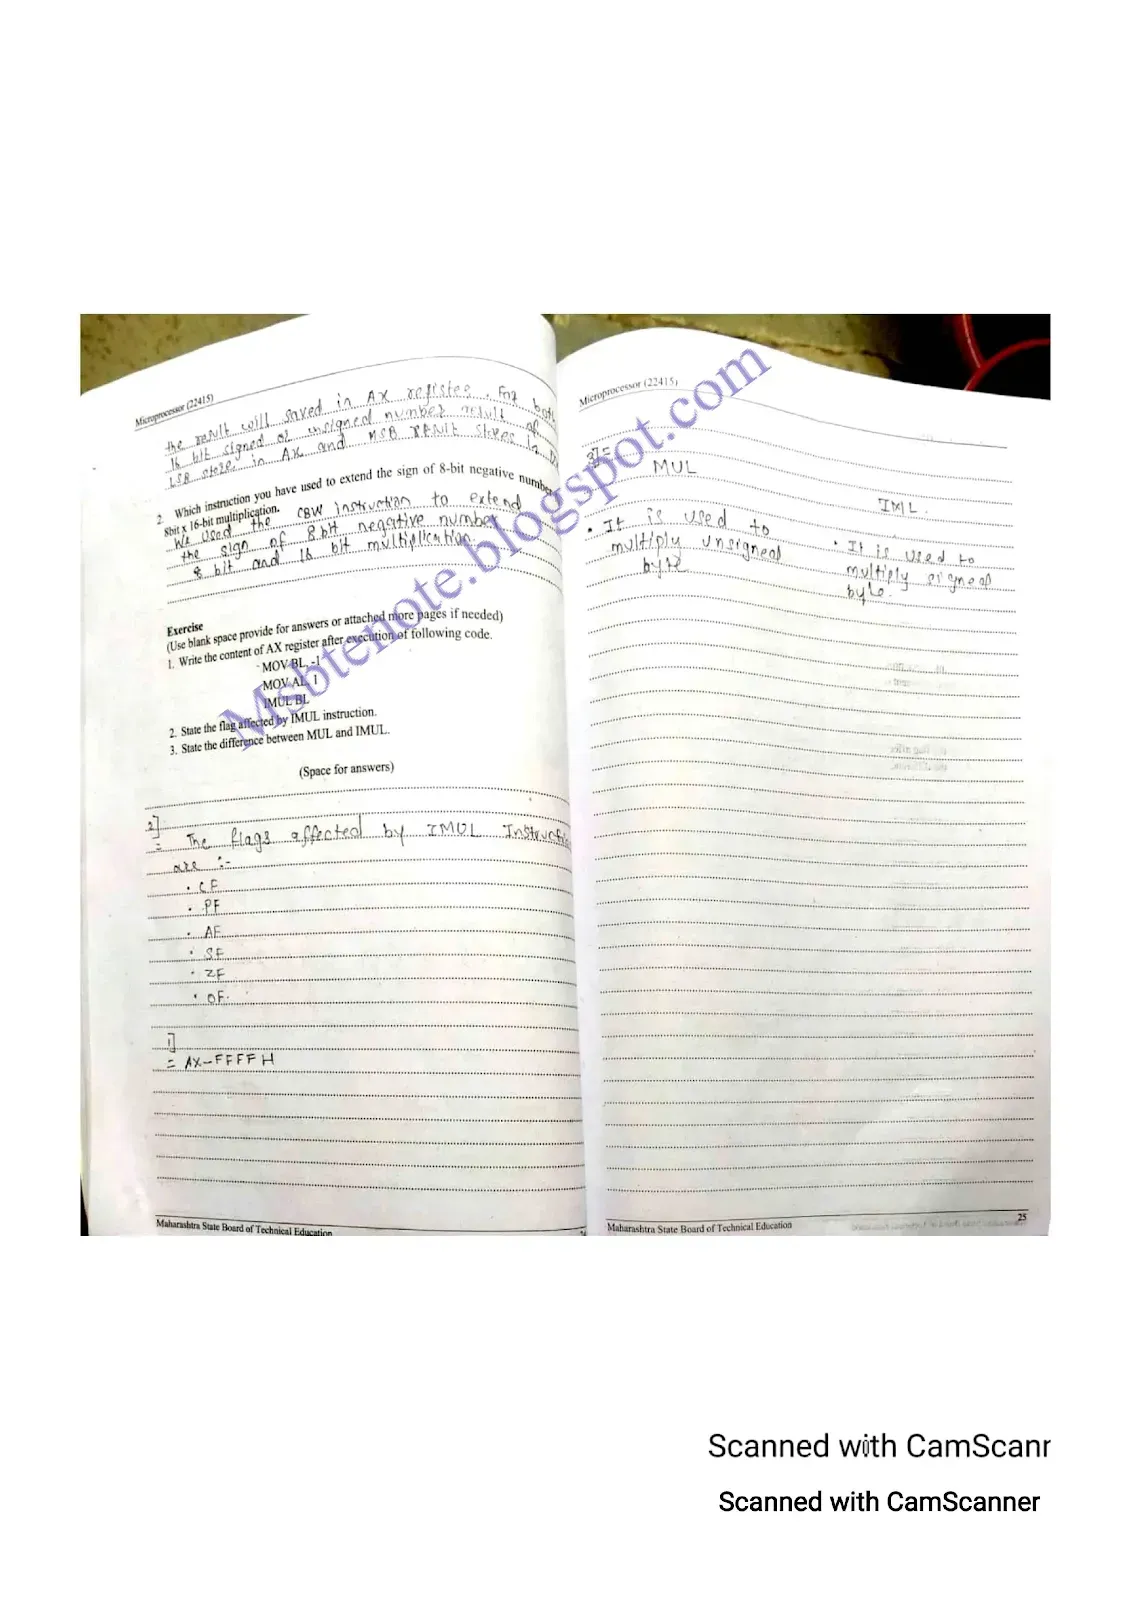 Microprocessor (22415)
the result will saved in AX register. For both
16 bit signed or unsigned number result of
LSB stores in AX and MSB result stores in D
2. Which instruction you have used to extend the sign of 8-bit negative number
8bit x 16-bit multiplication.
We used the CBW instruction to extend
the sign of 8bit negative number
8 bit and 16 bit multiplication.
Exercise
(Use blank space provide for answers or attached more pages if needed)
1. Write the content of AX register after execution of following code.
MOV BL, -1
MOV AL, 1
IMUL BL
2. State the flag affected by IMUL instruction.
3. State the difference between MUL and IMUL.
(Space for answers)
2]
= The flags affected by IMUL Instructi
are :-
• CF
• PF
• AF
• SF
• ZF
• OF.
1]
= AX-FFFFH
Maharashtra State Board of Technical Education
Microprocessor (22415)
3] =
MUL
IML.
• It is used to
multiply unsigned
byte
• It is used to
multiply signed
byte.
Maharashtra State Board of Technical Education
25
Msbtenote.blogspot.com
Scanned with CamScanr
Scanned with CamScanner